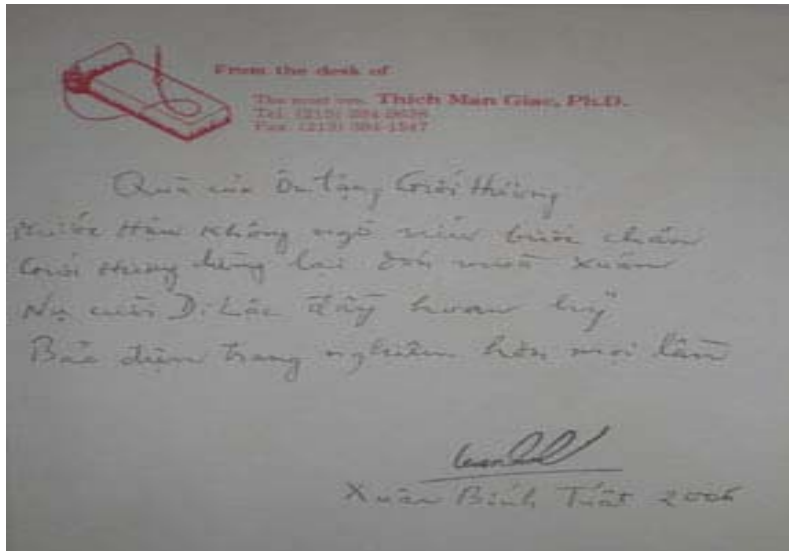 From the desk of
The most ven. Thich Man Giac, Ph.D.
Tel. (213) 384-
Fax (213) 384-1547
Quà của Ôn tặng Giới Hương
Hàn không ngờ níu bước chân
Giới Hương dừng lại đón mùa Xuân
Nụ cười Di Lặc đầy hoan hỷ
Bảo điện trang nghiêm hơn mọi lần
Xuân Bính Tuất 2006